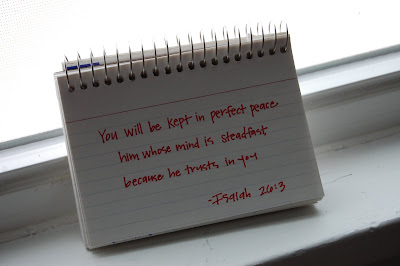 You will be kept in perfect peace.
him whose mind is steadfast
because he trusts in you
-Isaiah 26:3